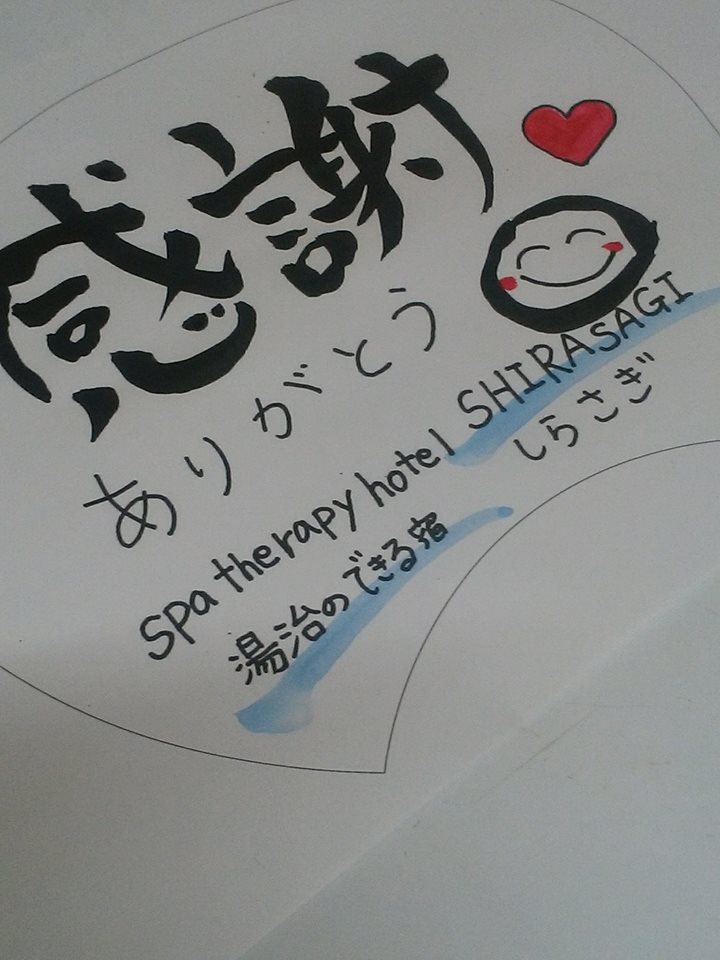 感謝
ありがとう
spa therapy hotel SHIRASAGI
しらさぎ
湯治のできる宿